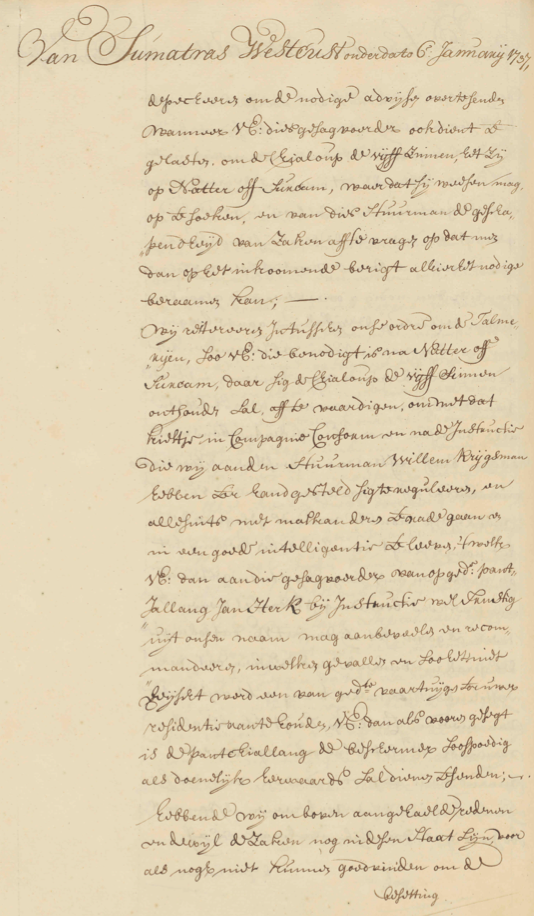 Van Sumatras Westcust onder dato 6:' January 1737,
depecheeren om de nodige advijsen over te senden
wanneer VE: dies gesaghvoerder ook dient te
gelasten, om de Chialoup de vijff Sinnen, het zij
op Natter off Suncam, waer dat sij weesen mag,
op te soeken, en van dies Stuurman de gescha„
„pendheijd van Zaken aff te vragen op dat men
dan op het inkoomende berigt alhier het nodige
beraamen kan; —
Wij reitereeren Intusschen onse ordre om de
„ Soo VE: die benodigt is na Natter off
Suncam, daar sig de Chialoup de vijff Sinnen
onthouden Sal, aff te vaardigen, om met dat
kieltje in Compagnie Conform en na de Instructie
die wij aan den Stuurman Willem Krijgsman
hebben ter hand gesteld sig te reguleeren, en
allesints met malkanderen te rade gaan en
in een goede intelligentie te leeven, 't welk
VE: dan aan die gesaghvoerder van op ged:e pant„
„Jallang Jan Sterk bij Instructie wel Ernstig
uijt onsen naam mag aanbeveelen en recom„
„mandeeren, in welken gevallen en Soo het niet
vereijscht werd een van ged:te vaartuijgen tot uwer
residentie aan te houden, VE: dan als vooren gesegt
is de pantchiallang de beschermer Soo spoedig
als doenelijk herwaards Sal dienen te senden; —
hebbende wij om boven aangehaelde redenen
en dewijl de Zaken nog in desen Staat Zijn, voor
als nogh niet kunnen goedvinden om de
besetting